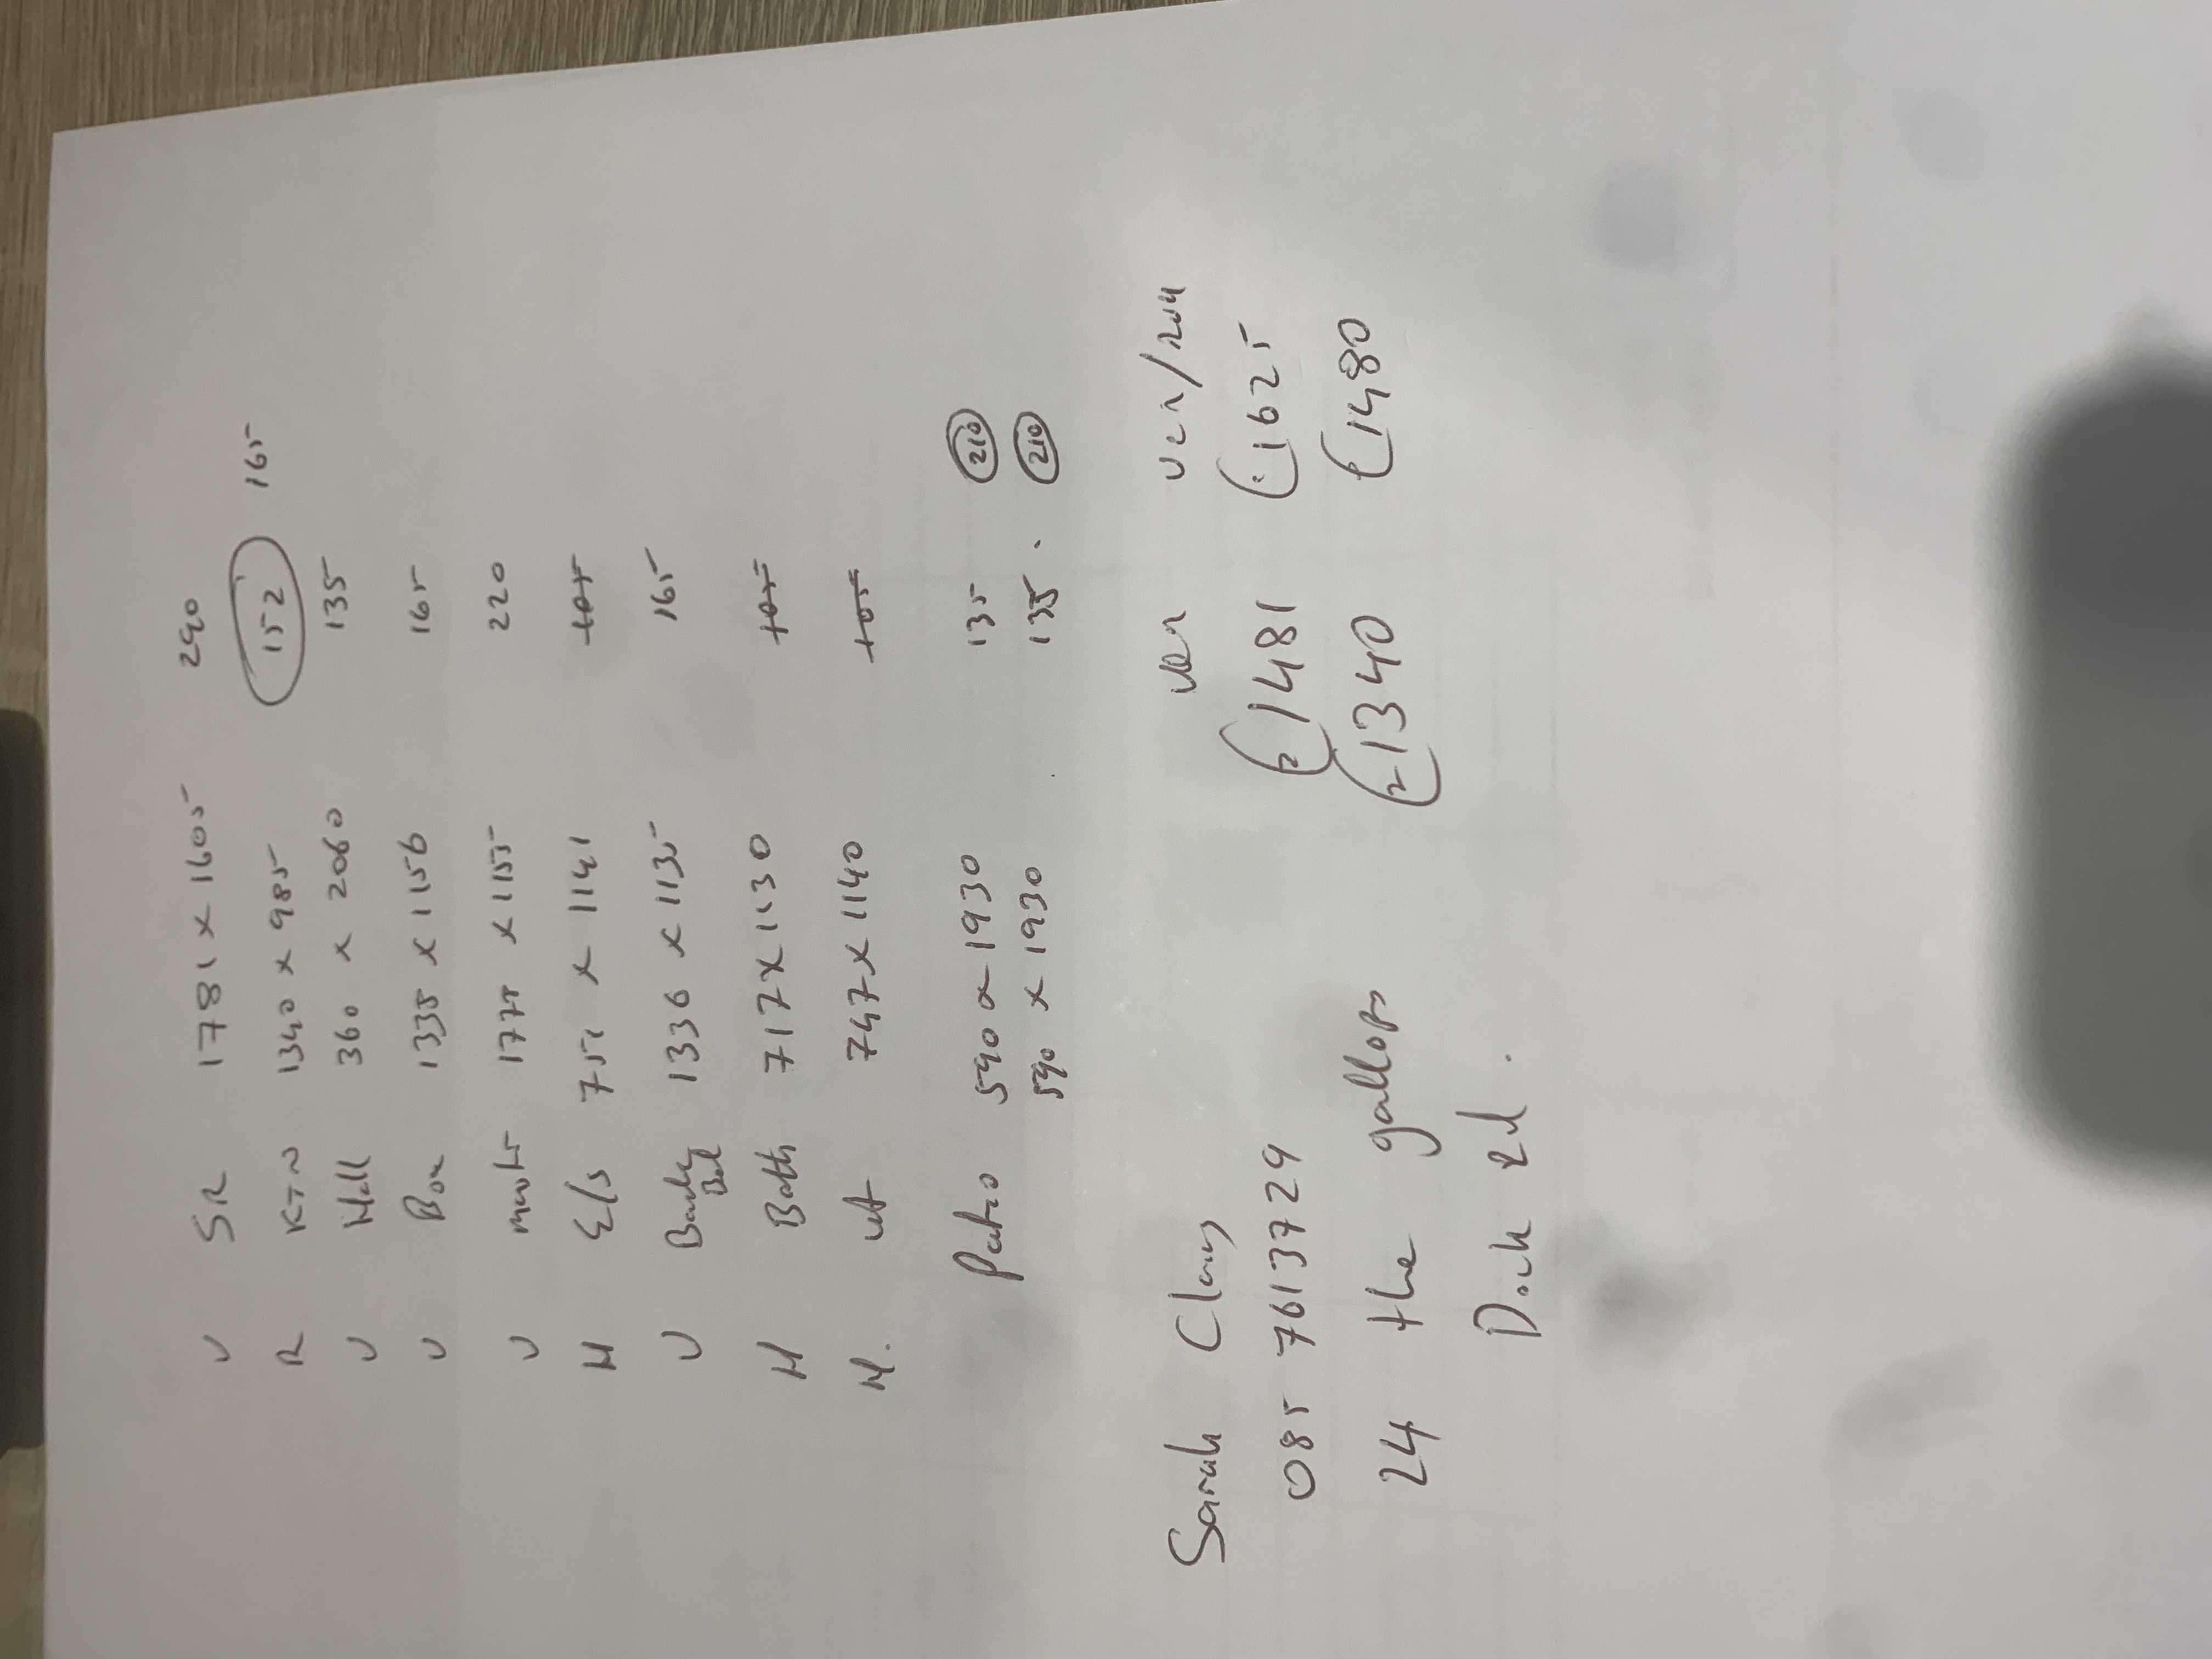 V SR 1781 x 1605 290
R KTN 1340 x 985 152 165
V Hall 360 x 2060 135
V Box 1335 x 1156 165
V 1775 x 1155 220
H E/S 751 x 1141 105
V Bed 1336 x 1135 165
H Bath 717 x 1130 105
H. 747 x 1140 105
Patio 590 x 1930 135 210
590 x 1930 135. 210
Ven Ven/
Sarah 1481 1625
085 7613729 1340 1480
24 the gallops